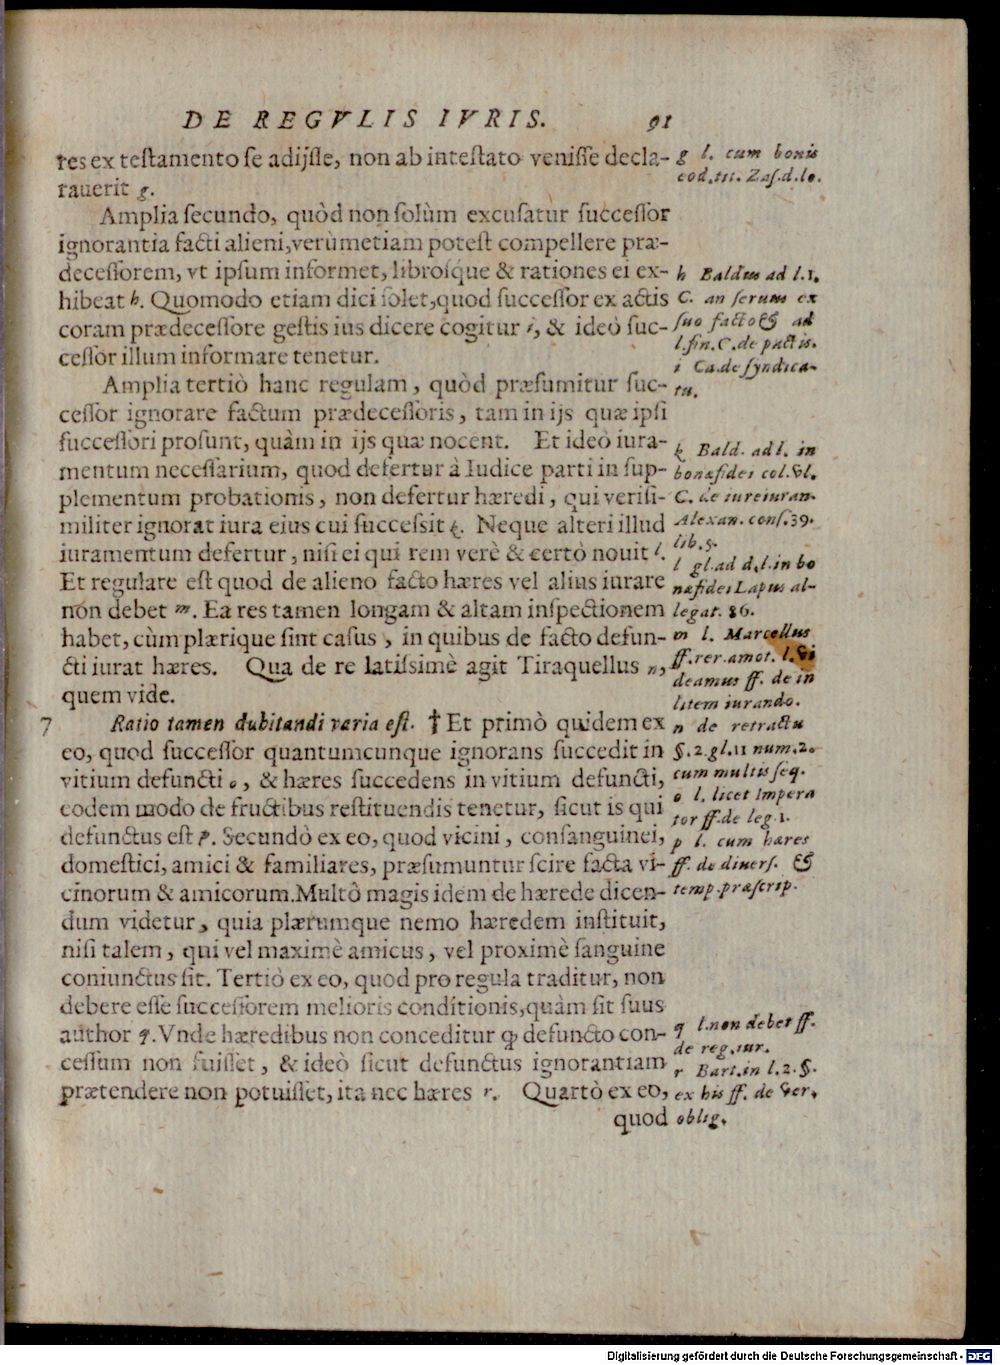 DE REGVLIS IVRIS. 91
res ex testamento se adijsse, non ab intestato venisse decla-
rauerit g.
Amplia secundo, quòd non solùm excusatur successor
ignorantia facti alieni, verùm etiam potest compellere præ-
decessorem, vt ipsum informet, librosque & rationes ei ex-
hibeat h. Quomodo etiam dici solet, quod successor ex actis
coram prædecessore gestis ius dicere cogitur i, & ideò suc-
cessor illum informare tenetur.
Amplia tertiò hanc regulam, quòd præsumitur suc-
cessor ignorare factum prædecessoris, tam in ijs quæ ipsi
successori prosunt, quàm in ijs quæ nocent. Et ideò iura-
mentum necessarium, quod defertur à Iudice parti in sup-
plementum probationis, non defertur hæredi, qui verisi-
militer ignorat iura eius cui successit k. Neque alteri illud
iuramentum defertur, nisi ei qui rem verè & certò nouit l.
Et regulare est quod de alieno facto hæres vel alius iurare
non debet m. Ea res tamen longam & altam inspectionem
habet, cùm plærique sint casus, in quibus de facto defun-
cti iurat hæres. Qua de re latissimè agit Tiraquellus n,
quem vide.
7 Ratio tamen dubitandi varia est. † Et primò quidem ex
eo, quod successor quantumcunque ignorans succedit in
vitium defuncti o, & hæres succedens in vitium defuncti,
eodem modo de fructibus restituendis tenetur, sicut is qui
defunctus est p. Secundò ex eo, quod vicini, consanguinei,
domestici, amici & familiares, præsumuntur scire facta vi-
cinorum & amicorum. Multò magis idem de hærede dicen-
dum videtur, quia plærumque nemo hæredem instituit,
nisi talem, qui vel maximè amicus, vel proximè sanguine
coniunctus sit. Tertiò ex eo, quod pro regula traditur, non
debere esse successorem melioris conditionis, quàm sit suus
author q. Vnde hæredibus non conceditur ꝙ defuncto con-
cessum non fuisset, & ideò sicut defunctus ignorantiam
prætendere non potuisset, ita nec hæres r. Quartò ex eo,
quod
g l. cum bonis
eod. tit. Zas. d. lo.
h Baldus ad l. 1.
C. an seruus ex
suo facto & ad
l. fin. C. de pactis.
i Ca. de syndica-
tu.
k Bald. ad l. in
bonæ fidei col. vl.
C. de iureiuran.
Alexan. cons. 39.
lib. 5.
l gl. ad d. l. in bo
næ fidei Lapus al-
legat. 86.
m l. Marcellus
ff. rer. amot. l. vi
deamus ff. de in
litem iurando.
n de retractu
§. 2. gl. 11 num. 2.
cum multis seq.
o l. licet Impera
tor ff. de leg. 1.
p l. cum hæres
ff. de diuers. &
temp. præscrip.
q l. non debet ff.
de reg. iur.
r Bart. in l. 2. §.
ex his ff. de ver.
oblig.
Digitalisierung gefördert durch die Deutsche Forschungsgemeinschaft - DFG